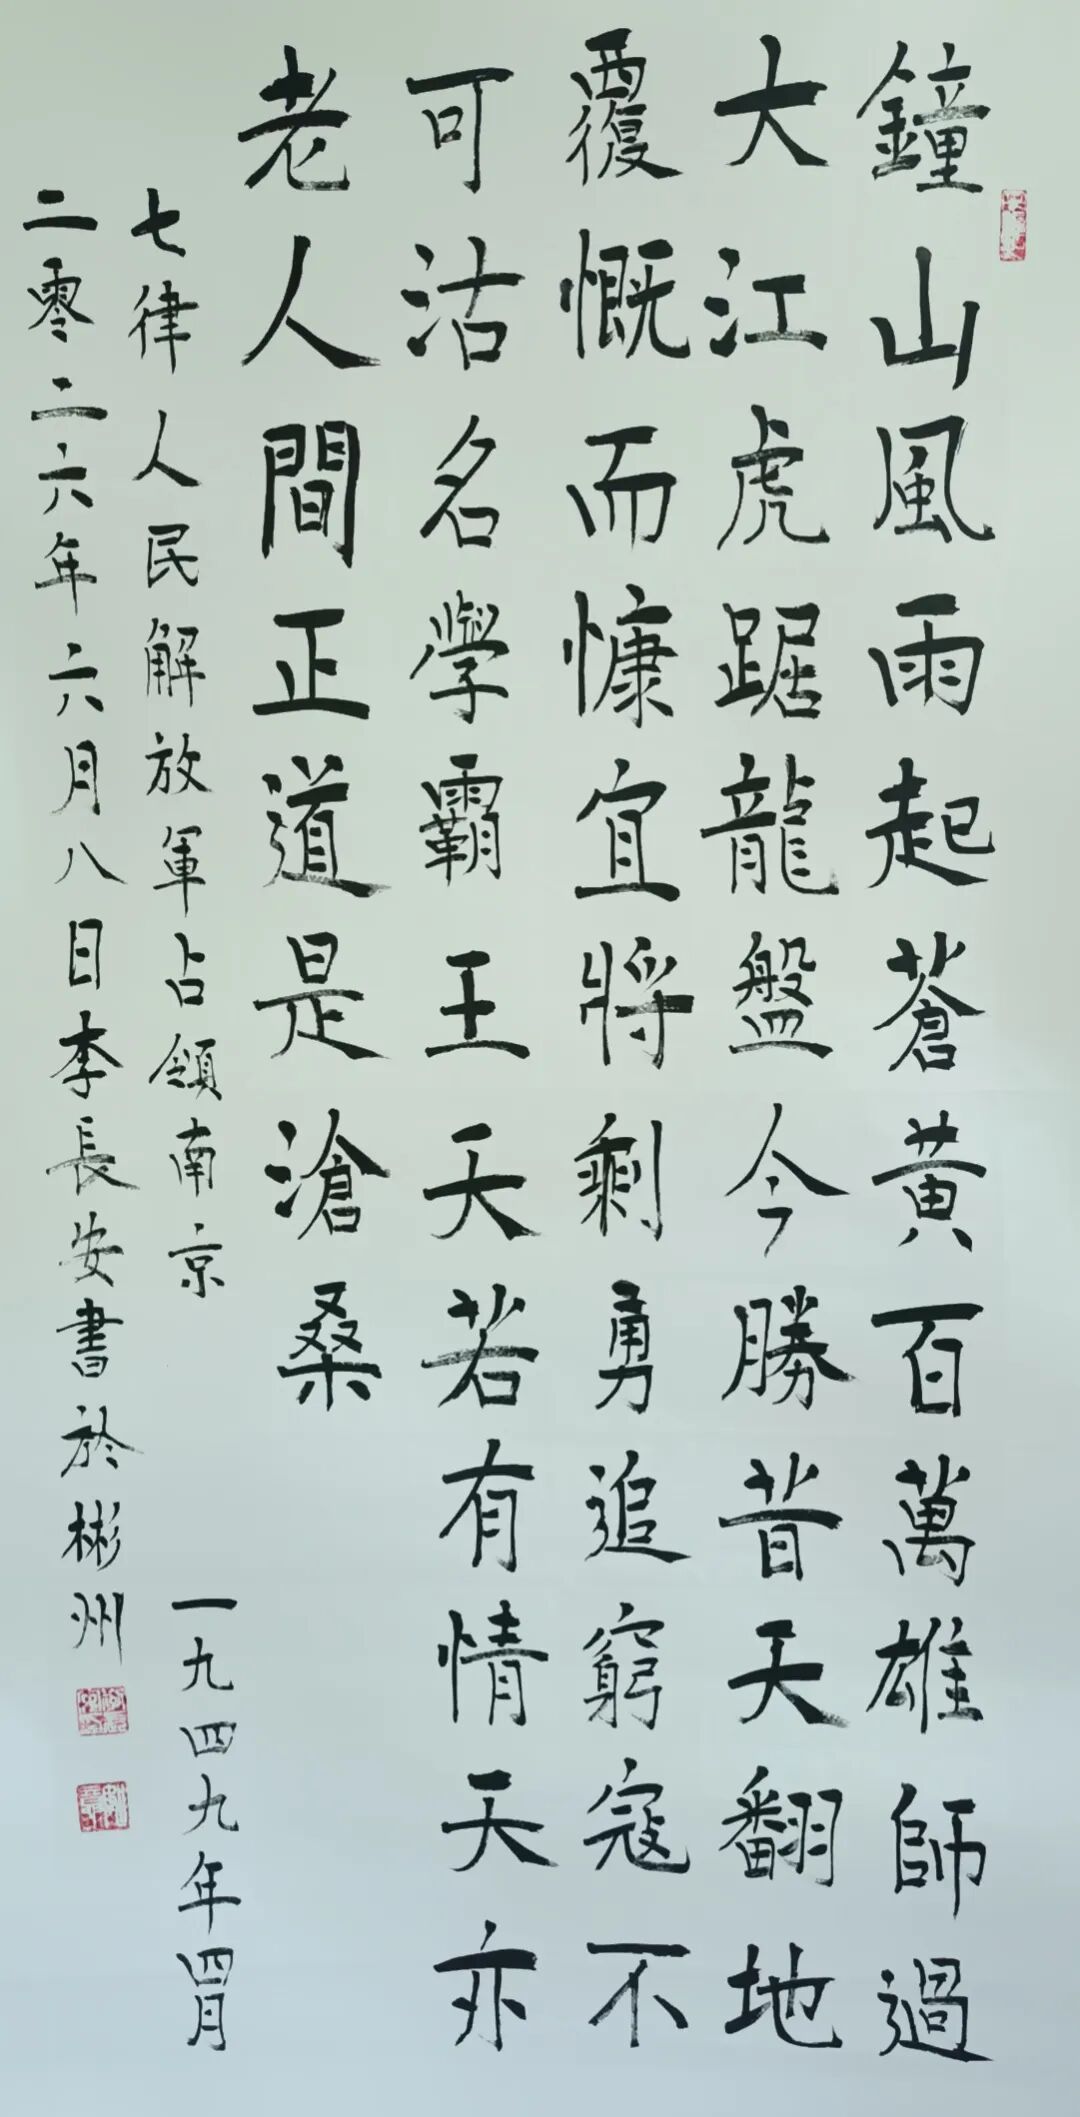 鐘山風雨起蒼黃百萬雄師過
大江虎踞龍盤今勝昔天翻地
覆慨而慷宜將剩勇追窮寇不
可沽名學霸王天若有情天亦
老人間正道是滄桑
七律人民解放軍占領南京
一九四九年四月
二零二六年六月八日李長安書於彬州